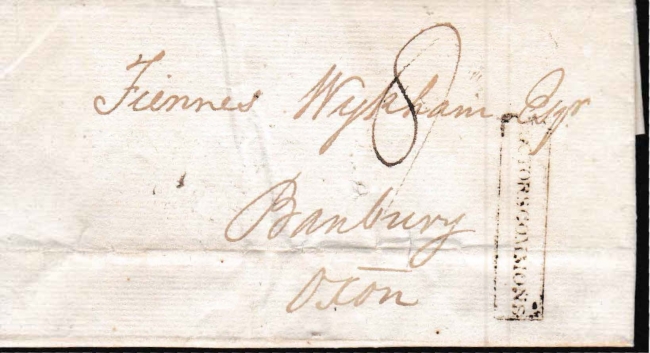 Fiennes Wykham Esqr
8
Banbury
Oxon
CTORSCOMMONS